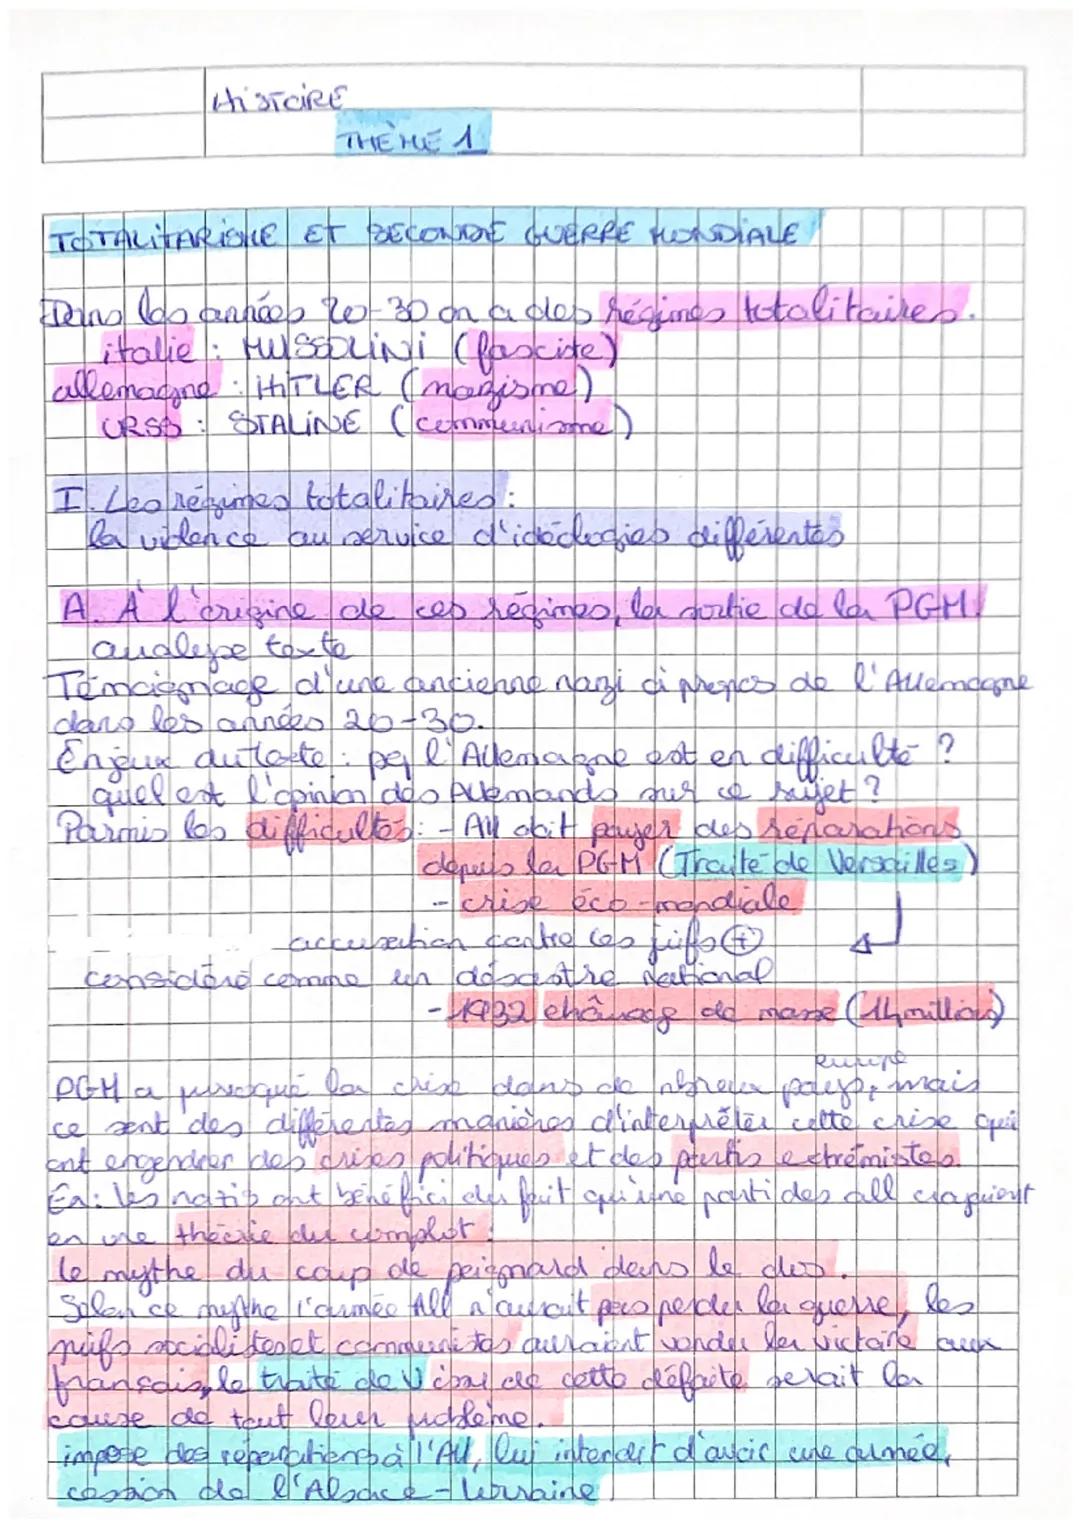 HiSTOiRE
THÈME 1
TOTALITARISME ET SECONDE GUERRE MONDIALE
Dans les années 20-30 on a des régimes totalitaires.
italie : MUSSOLINI (fasciste)
allemagne : HITLER (nazisme)
URSS : STALINE (communisme)
I. Les régimes totalitaires :
la violence au service d'idéologies différentes
A. À l'origine de ces régimes, la sortie de la PGM.
analyse texte
Témoignage d'une ancienne nazi à propos de l'Allemagne
dans les années 20-30.
Enjeux du texte : pq l'Allemagne est en difficulté ?
quel est l'opinion des Allemands sur ce sujet ?
Parmis les difficultés : - All doit payer des réparations
depuis la PGM (Traité de Versailles)
- crise éco-mondiale
accusation contre les juifs (+)
considéré comme un désastre national
- 1932 chômage de masse (14 million)
europe
PGM a provoqué la crise dans de nbreux pays, mais
ce sont des différentes manières d'interpréter cette crise qui
ont engendrer des crises politiques et des partis extrémistes.
Ex : les nazis ont bénéfici du fait qu'une parti des all croyaient
en une théorie du complot :
le mythe du coup de poignard dans le dos.
Selon ce mythe l'armée All n'aurait pas perdu la guerre, les
juifs socialistes et communistes auraient vendu la victoire aux
français, le traité de V issu de cette défaite serait la
cause de tout leur problème.
impose des réparations à l'All, lui interdit d'avoir une armée,
cession de l'Alsace-Lorraine